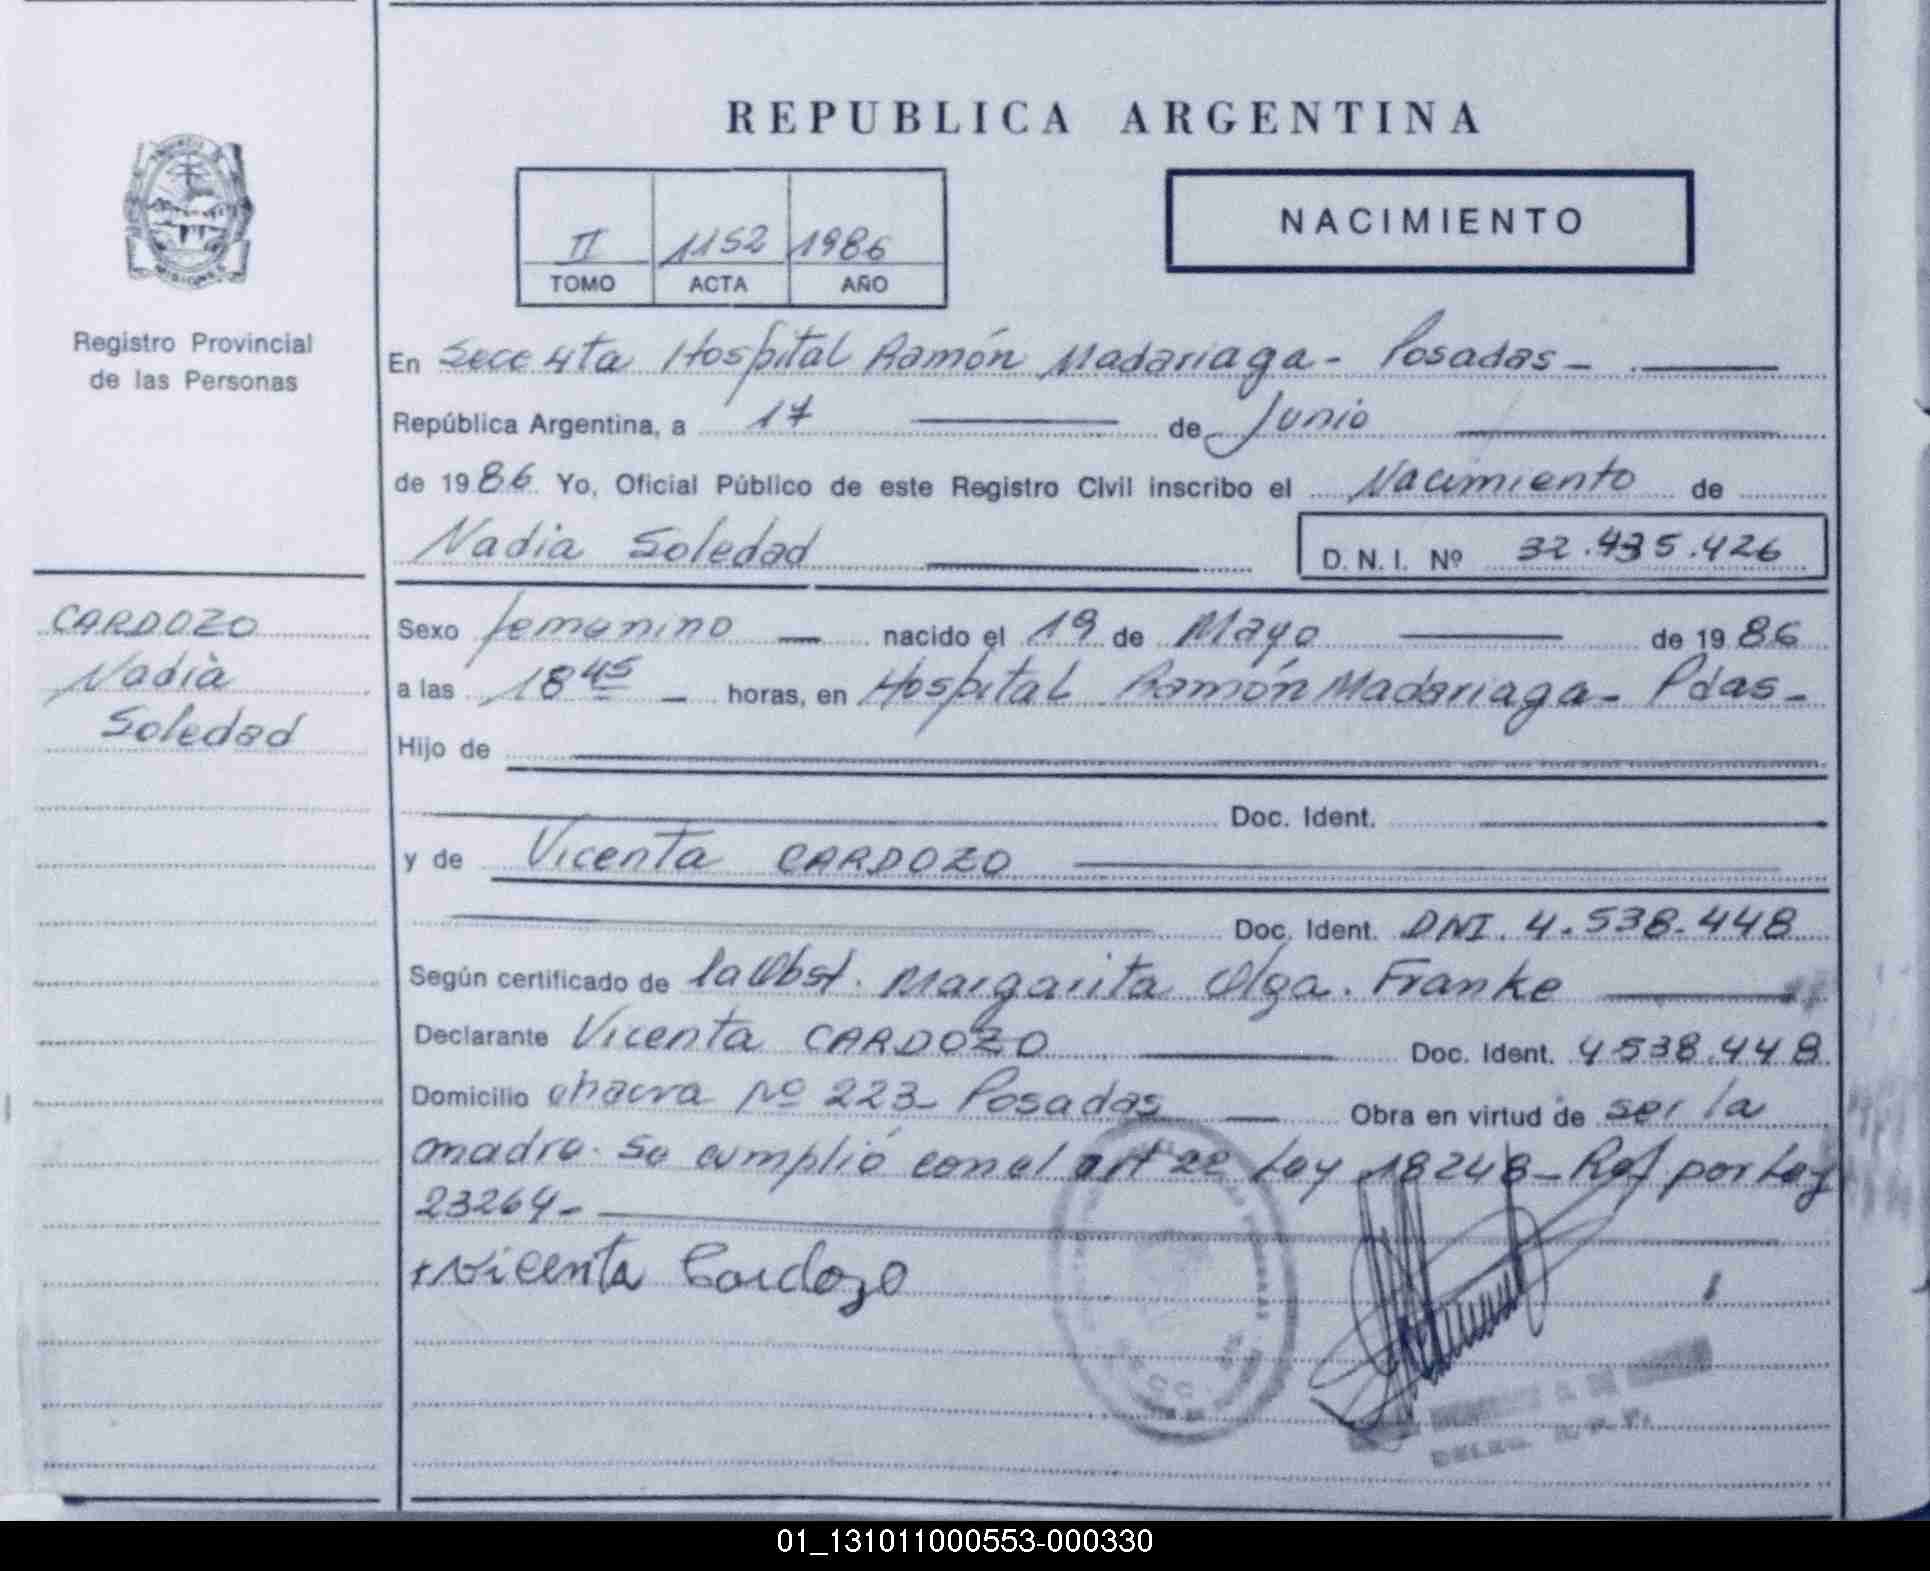 REPUBLICA ARGENTINA
II 1152 1986
TOMO ACTA AÑO
NACIMIENTO
Registro Provincial
de las Personas
CARDOZO
Nadia
Soledad
En Secc 4ta Hospital Ramón Madariaga - Posadas -
República Argentina, a 17 de Junio
de 1986 Yo, Oficial Público de este Registro Civil inscribo el Nacimiento de
Nadia Soledad D. N. I. Nº 32.435.426
Sexo femenino nacido el 19 de Mayo de 1986
a las 18 45 horas, en Hospital Ramón Madariaga - Pdas -
Hijo de
Doc. Ident.
y de Vicenta CARDOZO
Doc. Ident. DNI. 4.538.448
Según certificado de la Obst. Margarita Olga. Franke
Declarante Vicenta CARDOZO Doc. Ident. 4538.448
Domicilio chacra Nº 223 - Posadas Obra en virtud de ser la
madre. Se cumplió con el art 2º Ley 18248 - Ref por Ley
23264 -
Vicenta Cardozo
01_131011000553-000330